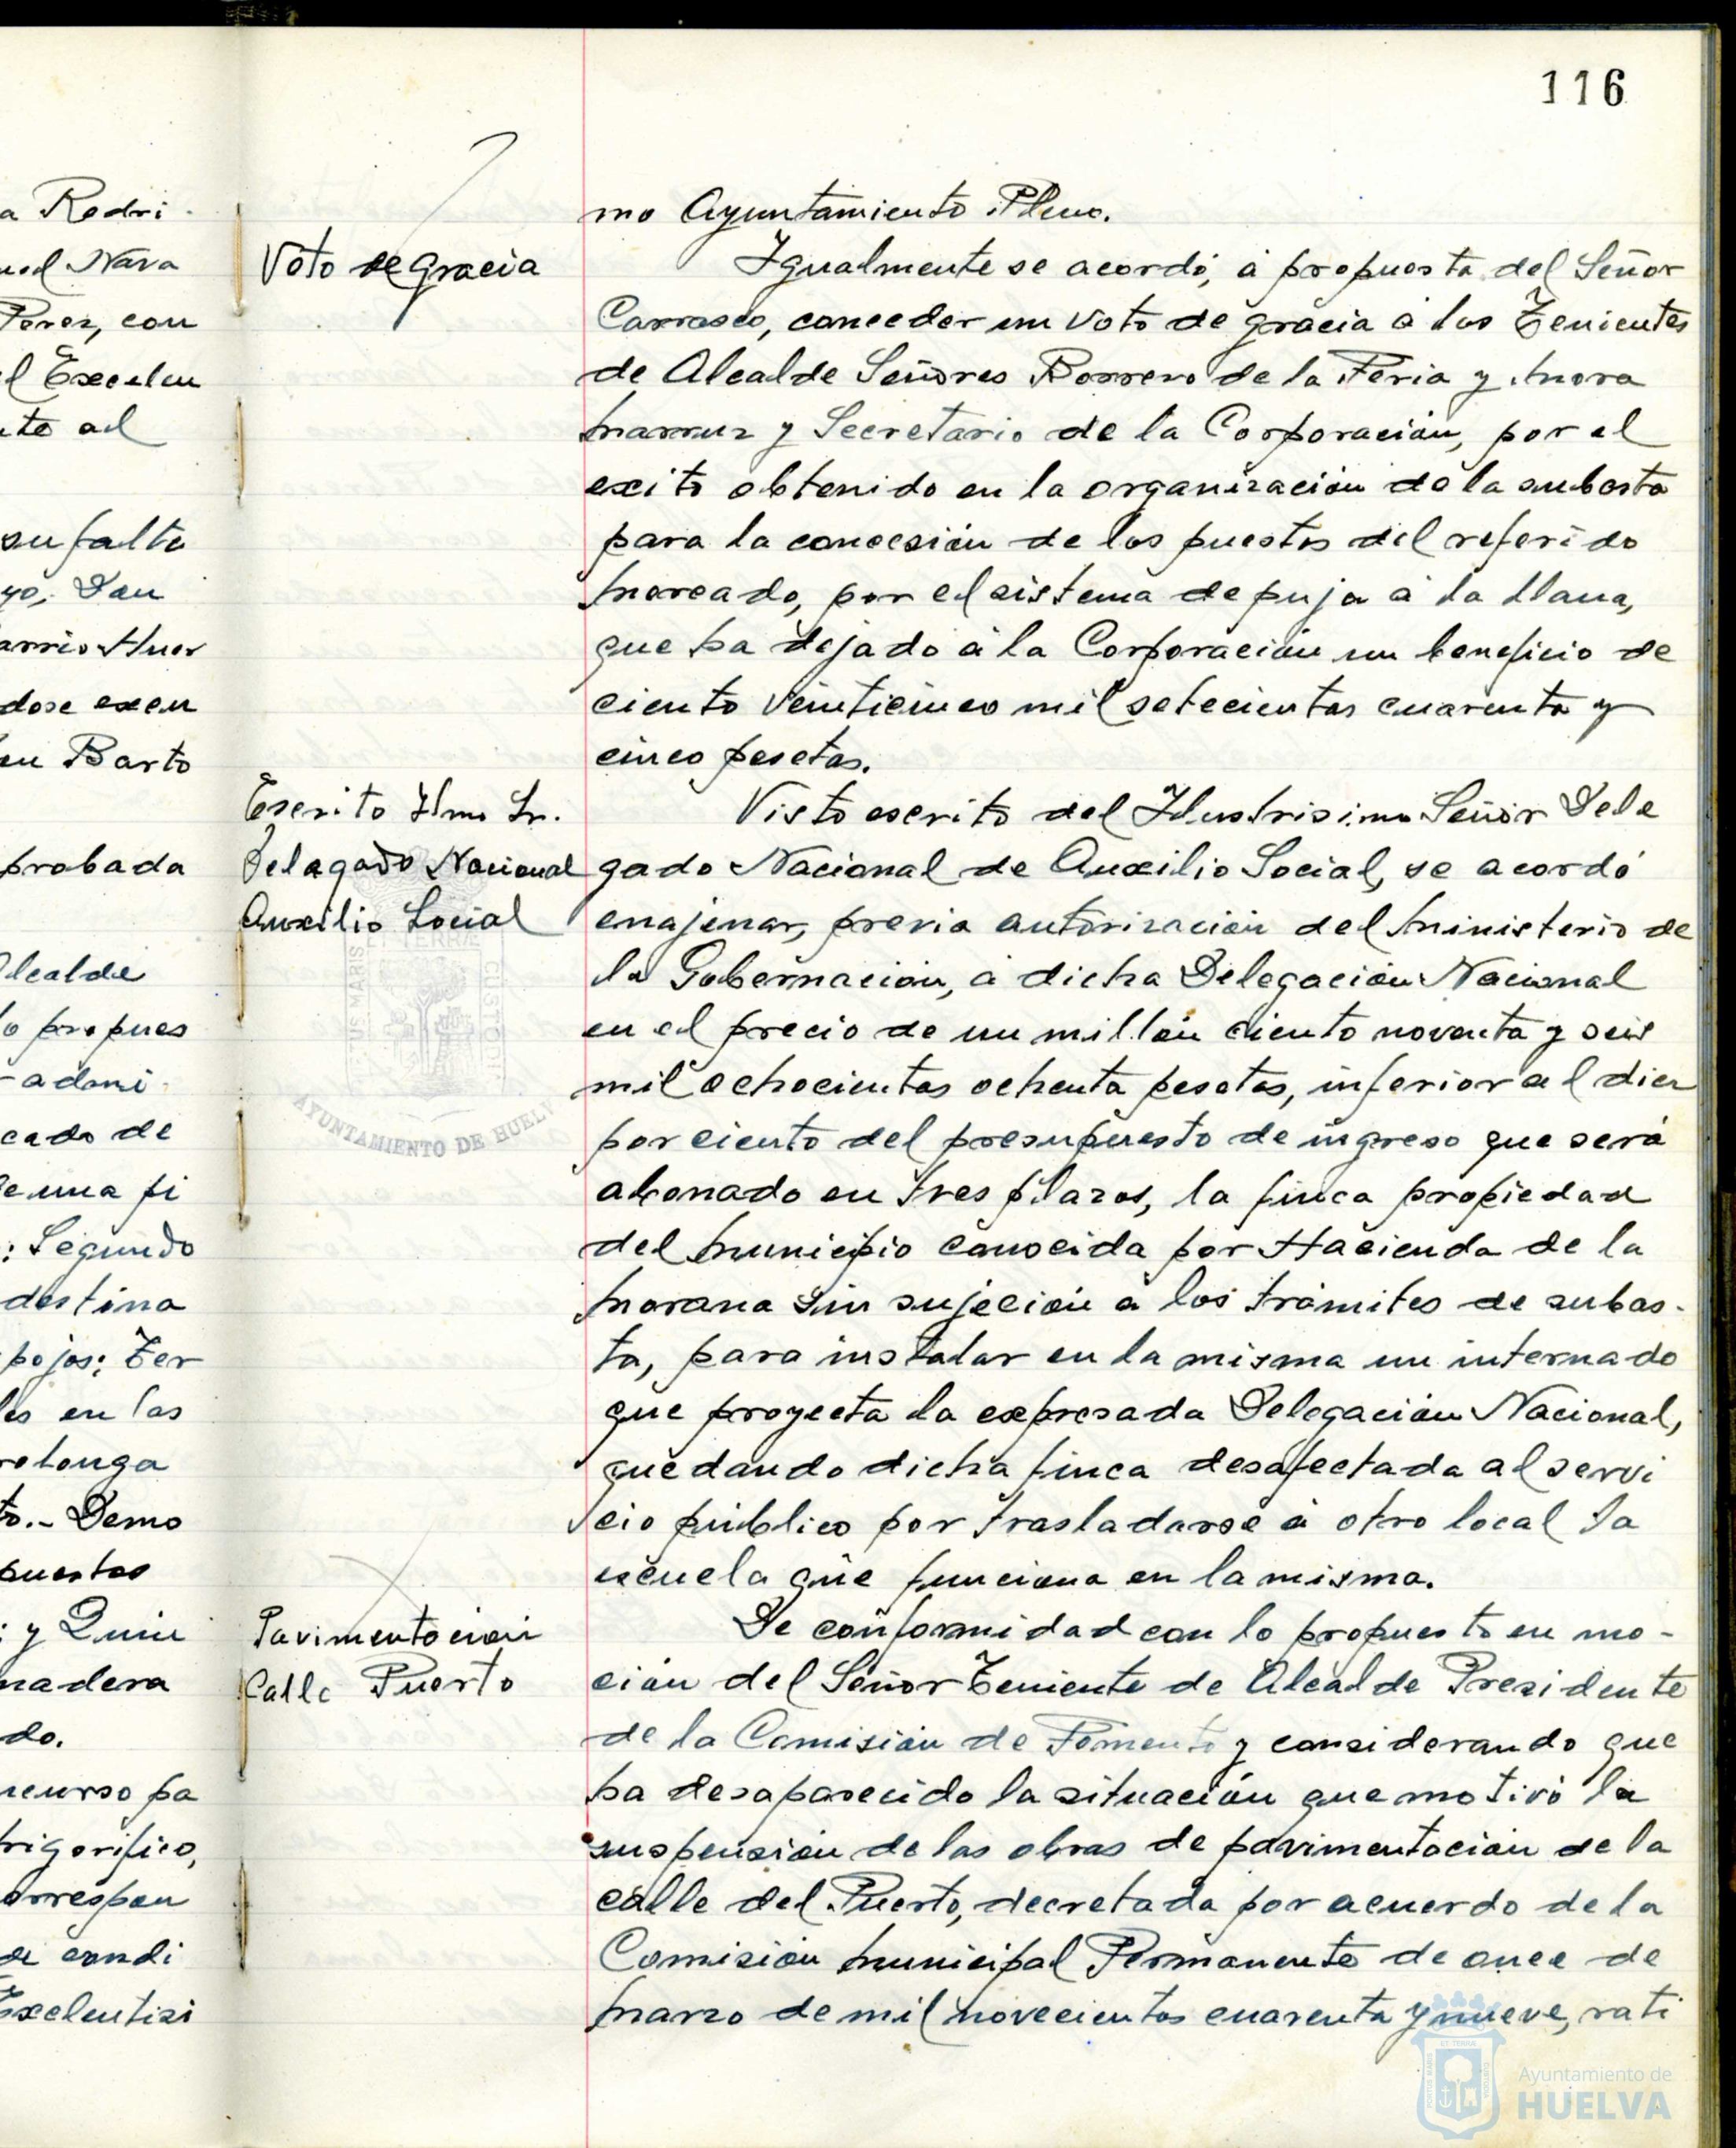 116
a Redri
uel Nava
Perez, con
el Excelen
te al
su falta
yo; Dan
arrio Huer
dose exen
en Barto
probada
Alcalde
lo propues
adoni
cado de
de una fi
: Segundo
destina
pojos; Ter
les en las
rolonga
to.- Demo
puestos
: y Quin
madera
do.
ncurso pa
frigorifico,
orrespon
se condi
Excelentisi
mo Ayuntamiento Pleno.
Voto de gracia
Igualmente se acordó, á propuesta del Señor
Carrasco, conceder un voto de gracia a los Tenientes
de Alcalde Señores Borrero de la Feria y Mora
Marruz y Secretario de la Corporación, por el
exito obtenido en la organización de la subasta
para la concesión de los puestos del referido
Mercado, por el sistema de puja a la llana,
que ha dejado a la Corporación un beneficio de
ciento veinticinco mil setecientas cuarenta y
cinco pesetas.
Escrito Ilmo Sr.
Delegado Nacional
Auxilio Social
Visto escrito del Ilustrisimo Señor Dele
gado Nacional de Auxilio Social, se acordó
enajenar, previa autorización del Ministerio de
la Gobernación, á dicha Delegación Nacional
en el precio de un millón ciento noventa y seis
mil ochocientas ochenta pesetas, inferior al diez
por ciento del presupuesto de ingreso que será
abonado en tres plazos, la finca propiedad
del Municipio conocida por Hacienda de la
Morana sin sujeción a los trámites de subas-
ta, para instalar en la misma un internado
que proyecta la expresada Delegación Nacional,
quedando dicha finca desafectada al servi
cio público por trasladarse a otro local la
escuela que funciona en la misma.
Pavimentación
Calle Puerto
De conformidad con lo propuesto en mo-
ción del Señor Teniente de Alcalde Presidente
de la Comisión de Fomento y considerando que
ha desaparecido la situación que motivó la
suspensión de las obras de pavimentación de la
calle del Puerto, decretada por acuerdo de la
Comisión Municipal Permanente de once de
Marzo de mil novecientos cuarenta y nueve, rati
ET TERRÆ
US MARIS
CUSTODI
AYUNTAMIENTO DE HUELV
Ayuntamiento de
HUELVA